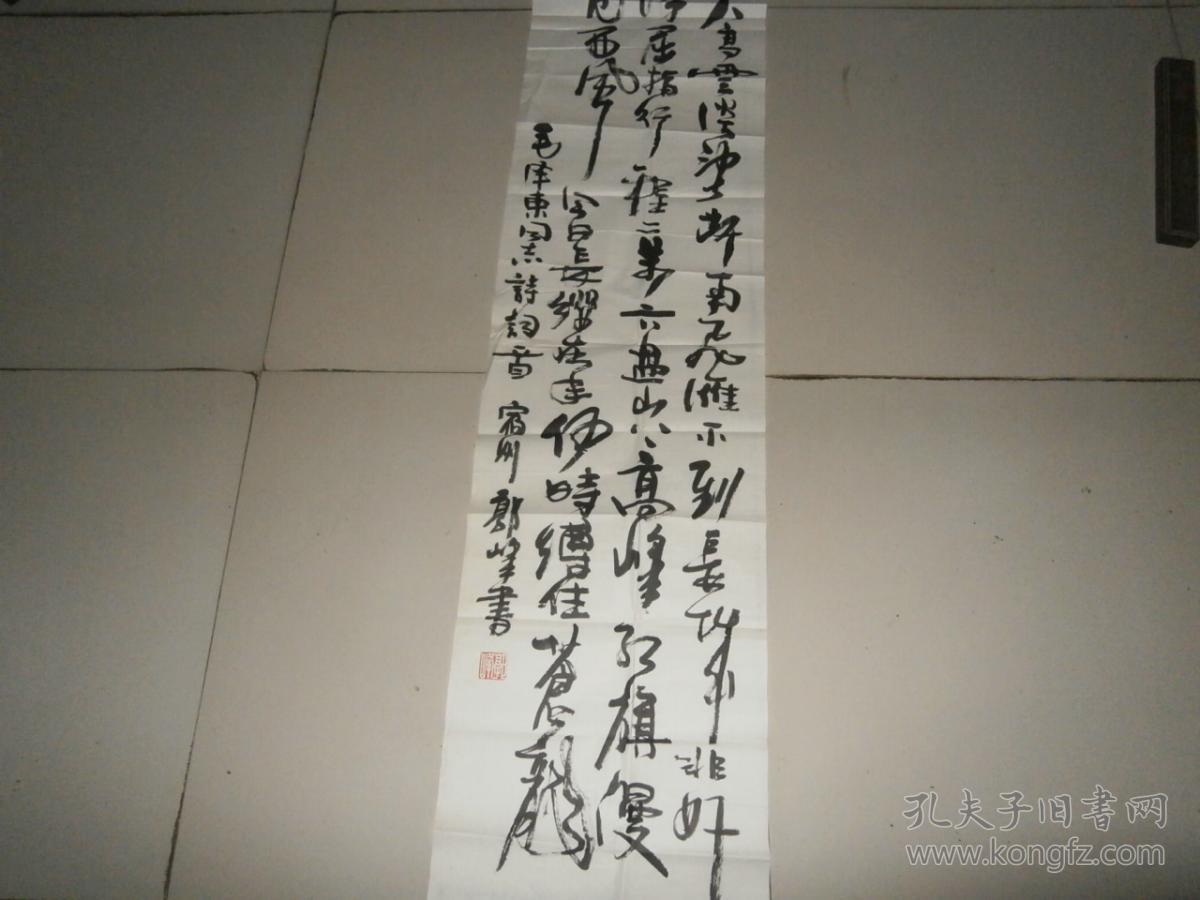 天高雲淡望断南飛雁不到長城非好
漢屈指行程二萬六盤山上高峰红旗漫
卷西風
今日長纓在手何時縛住蒼龍
毛泽東同志詩詞一首 宿州 郭峰書
孔夫子旧书网
www.kongfz.com